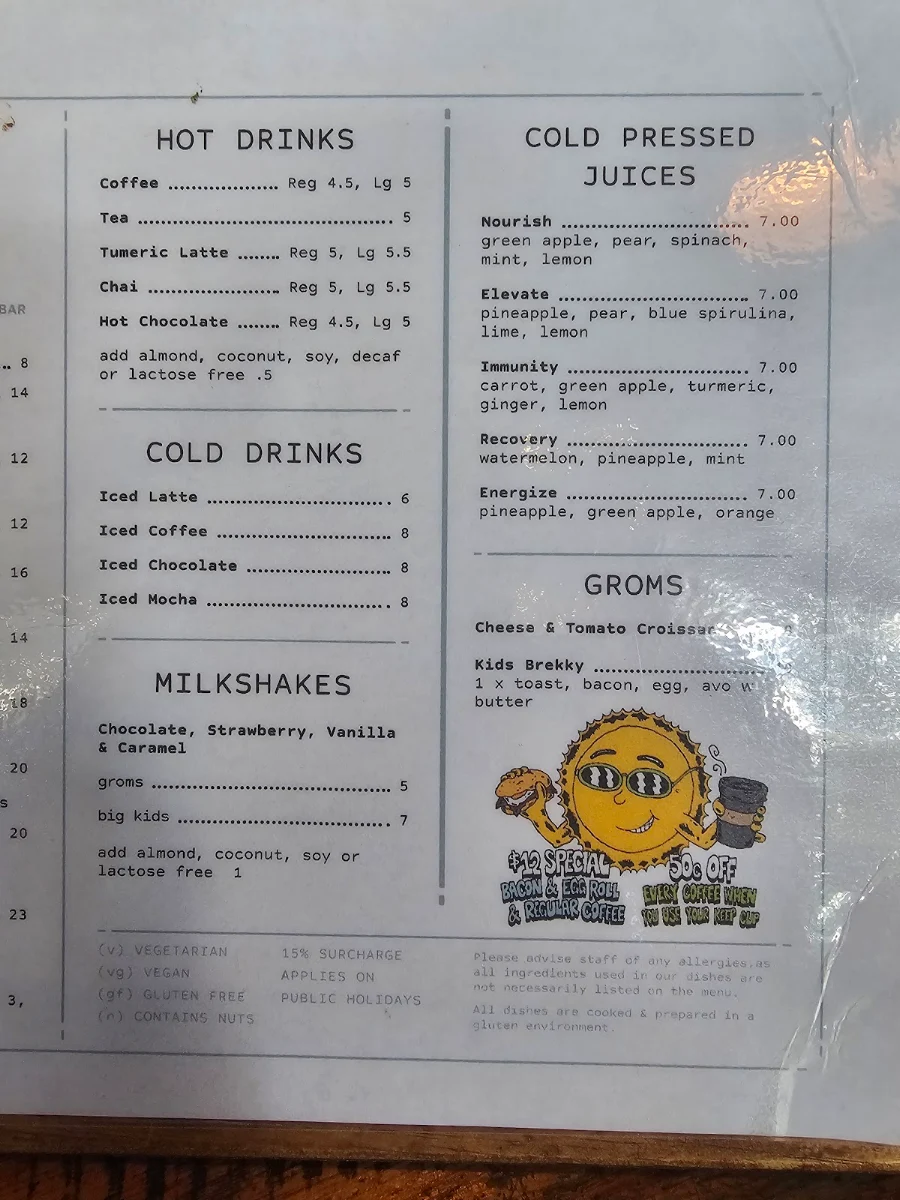 BAR
.. 8
14
12
12
16
14
18
20
s
20
23
3,
HOT DRINKS
Coffee .................... Reg 4.5, Lg 5
Tea .............................................. 5
Tumeric Latte ........ Reg 5, Lg 5.5
Chai ........................ Reg 5, Lg 5.5
Hot Chocolate ........ Reg 4.5, Lg 5
add almond, coconut, soy, decaf
or lactose free .5
COLD DRINKS
Iced Latte .................................. 6
Iced Coffee ................................ 8
Iced Chocolate .......................... 8
Iced Mocha .................................. 8
MILKSHAKES
Chocolate, Strawberry, Vanilla
& Caramel
groms ............................................ 5
big kids ...................................... 7
add almond, coconut, soy or
lactose free 1
COLD PRESSED
JUICES
Nourish .................................. 7.00
green apple, pear, spinach,
mint, lemon
Elevate .................................. 7.00
pineapple, pear, blue spirulina,
lime, lemon
Immunity ................................ 7.00
carrot, green apple, turmeric,
ginger, lemon
Recovery ................................ 7.00
watermelon, pineapple, mint
Energize ................................ 7.00
pineapple, green apple, orange
GROMS
Cheese & Tomato
Kids Brekky ..................................
1 x toast, bacon, egg, avo
butter
$12 SPECIAL
BACON & EGG ROLL
& REGULAR COFFEE
50c OFF
EVERY COFFEE WHEN
YOU USE YOUR KEEP CUP
(v) VEGETARIAN
(vg) VEGAN
(gf) GLUTEN FREE
(n) CONTAINS NUTS
15% SURCHARGE
APPLIES ON
PUBLIC HOLIDAYS
Please advise staff of any allergies,as
all ingredients used in our dishes are
not necessarily listed on the menu.
All dishes are cooked & prepared in a
gluten environment.